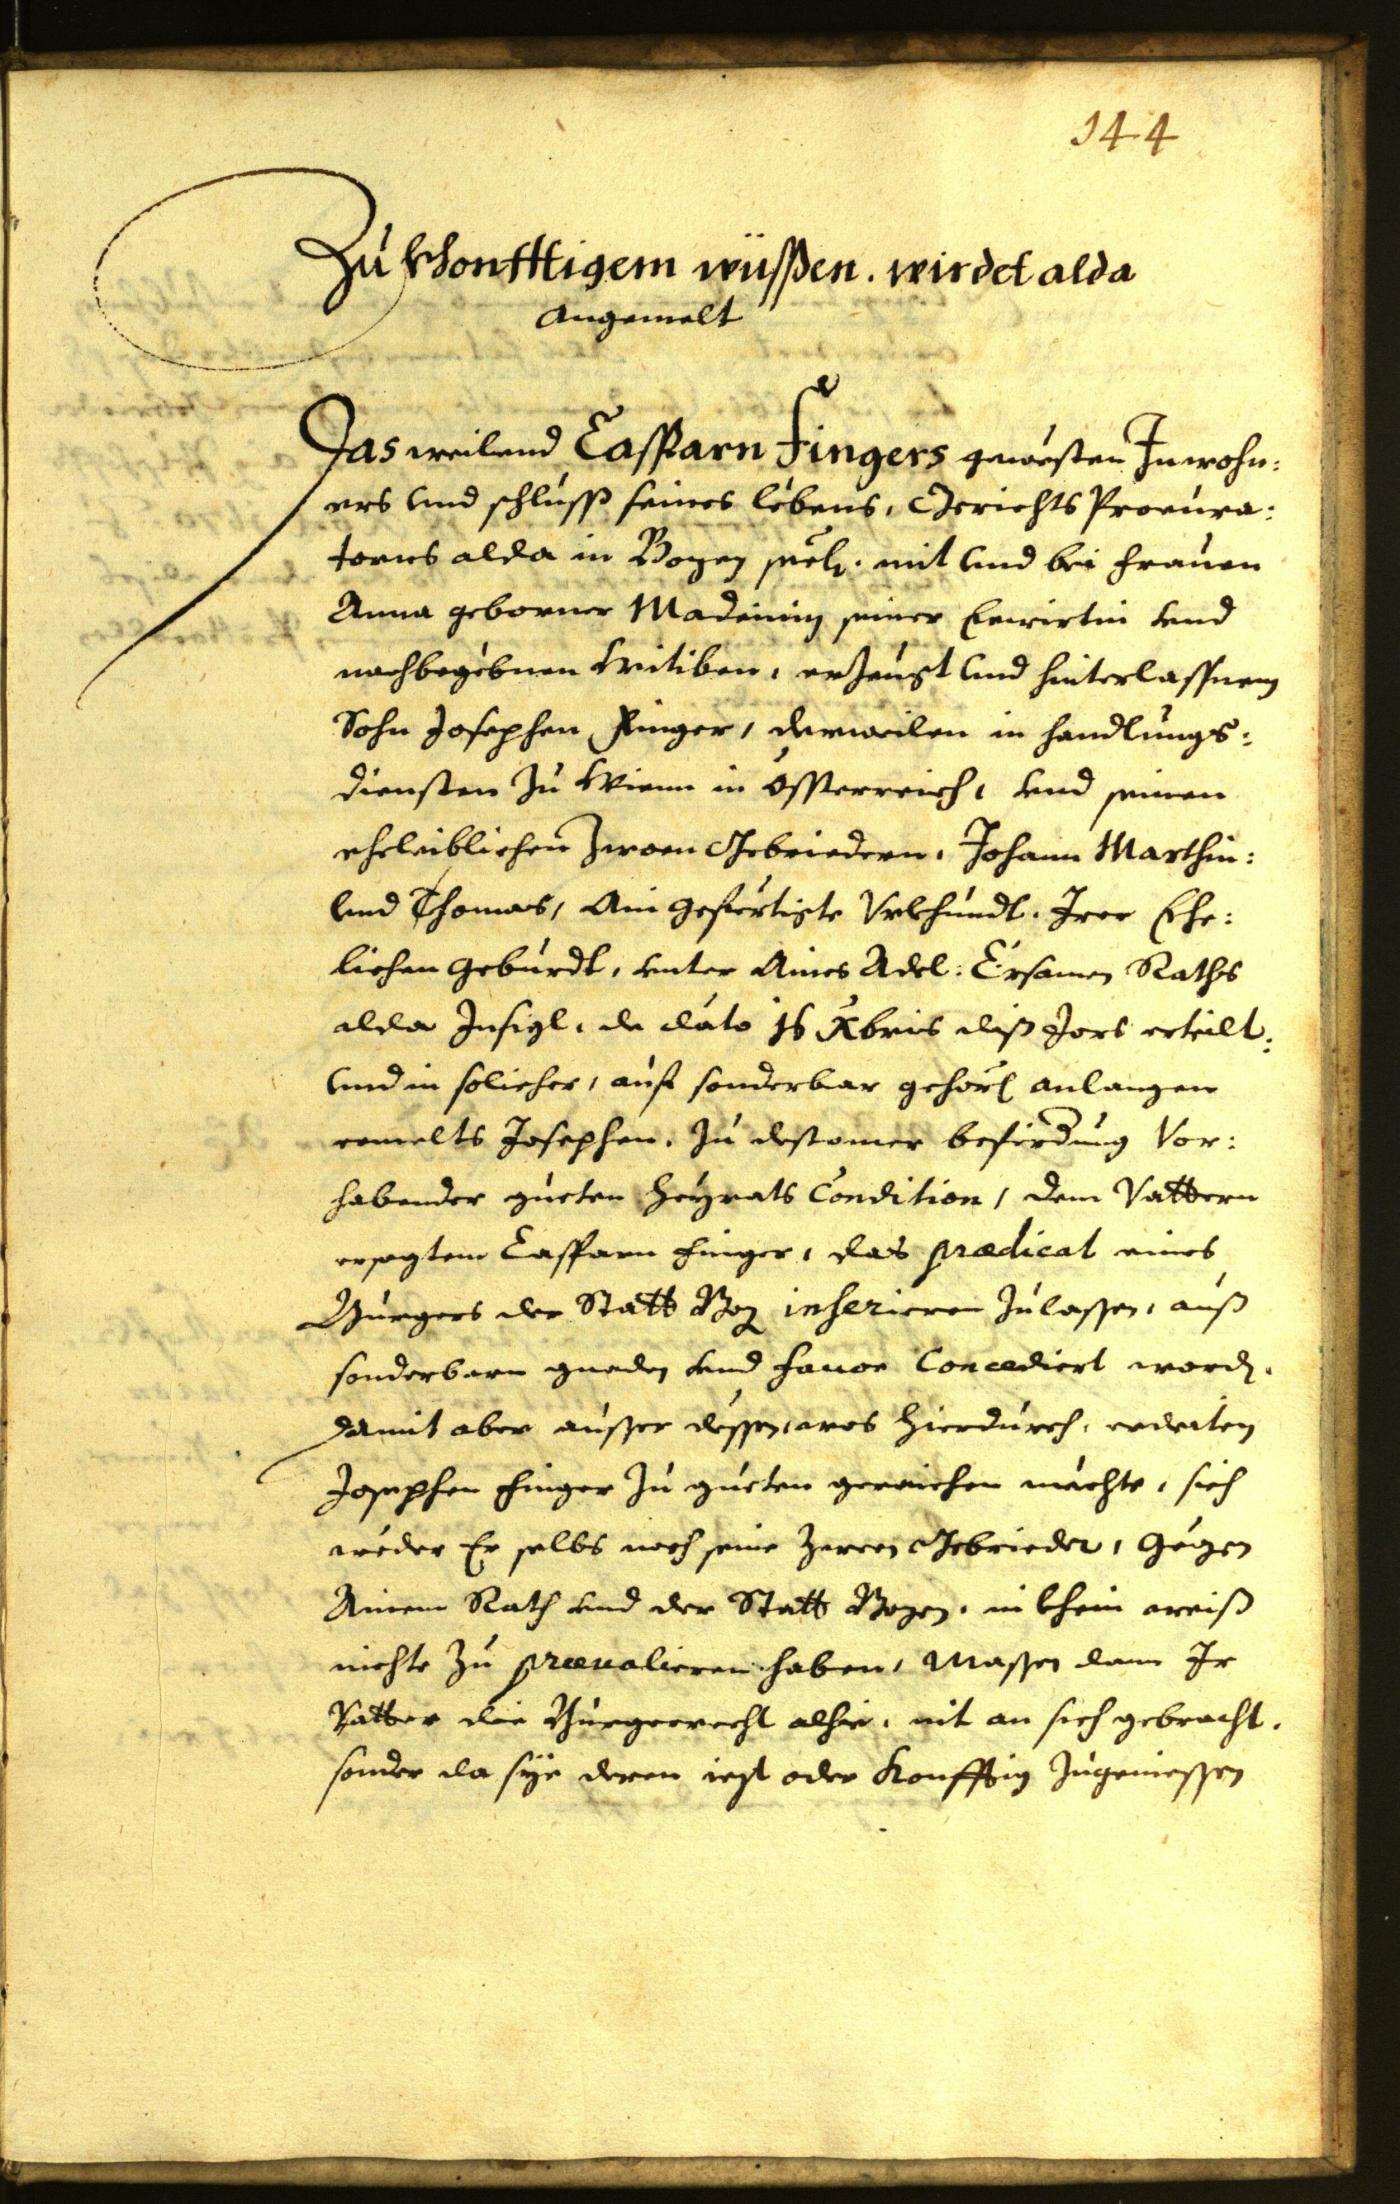 144
Zu khonfftigem wüssen. wirdet alda
angemelt
Das weilend Casparn Fingers gewesten Inwohn:
ers und schluss seines lebens, Gerichts Procura:
torns alda in Bozen seel. mit und bei Frauen
Anna geborner Madeinin seiner Eewirtin und
nachbegebnen Witiben, erzeugt und hinterlassnem
Sohn Josephen Finger, derweilen in handlungs:
diensten zu Wienn in Össterreich, und seinen
eheleiblichen zwoen Gebriedern, Johann Marthin:
und Thomas, Ain gefertigte Urkhundt. Irer Ehe:
lichen geburdt, unter Aines Adel: Ersamen Raths
alda Insigl, de dato 16 Xbris diss Jars erteilt:
und in solicher, auf sonderbar gehors anlangen
ermelts Josephen, zu destomer befirdung vor:
habender gueten heyrats Condition, dem Vattern
ersagtem Casparn Finger, das prædicat eines
Burgers der Statt Boz inserieren zulassen, auß
sonderbarn gnaden und favor Concediert worden.
damit aber ausser dessen, was hierdurch, erdeiten
Josephen Finger zu gueten geraichen mechte, sich
weder Er selbs noch seine zween Gebrieder, gegen
Ainem Rath und der Statt Bozen, in khein weiß
nichts zu prævalieren haben, Massen dann Ir
Vatter die Burgerrecht alhie, nit an sich gebracht.
sonder da sÿe deren iezt oder konfftig zugeniessen